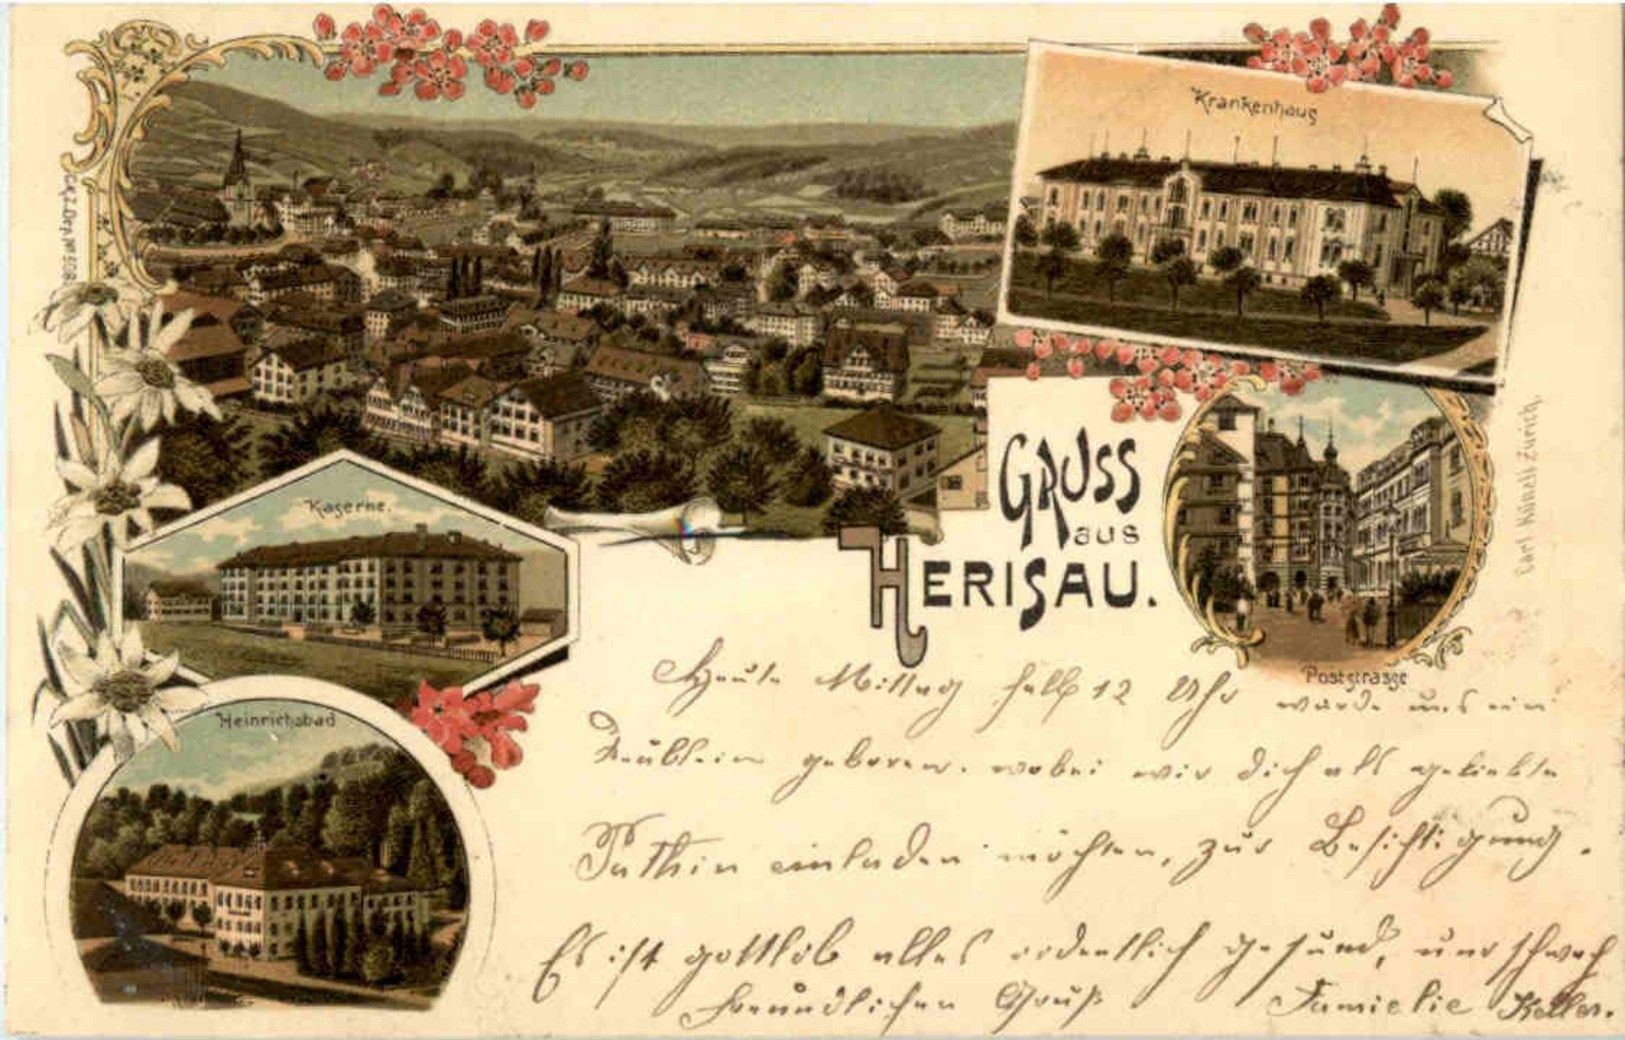 Krankenhaus
GRUSS
aus
HERISAU.
Kaserne.
Poststrasse
Heinrichsbad
Carl Künzli Zürich,
Heute Mittag halb 12 Uhr wurde uns ein
geboren. wobei wir dich als geliebte
Pathin einladen möchten, zur Besichtigung.
Es ist gottlob alles ordentlich gesund, und schwach
freundlichen Gruß Familie Keller.